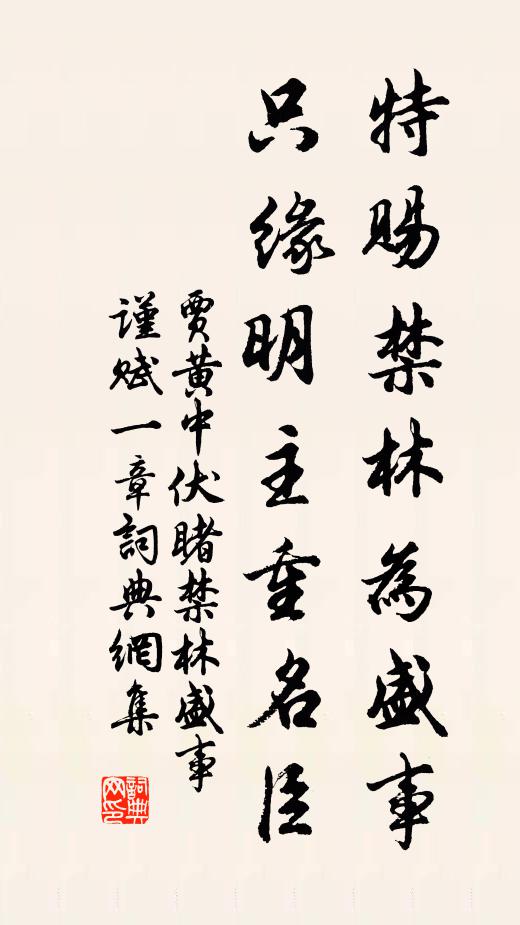 特賜禁林為盛事
只緣明主重名臣
賈黃中伏睹禁林盛事
謹賦一章詞典網集
詞典
网印